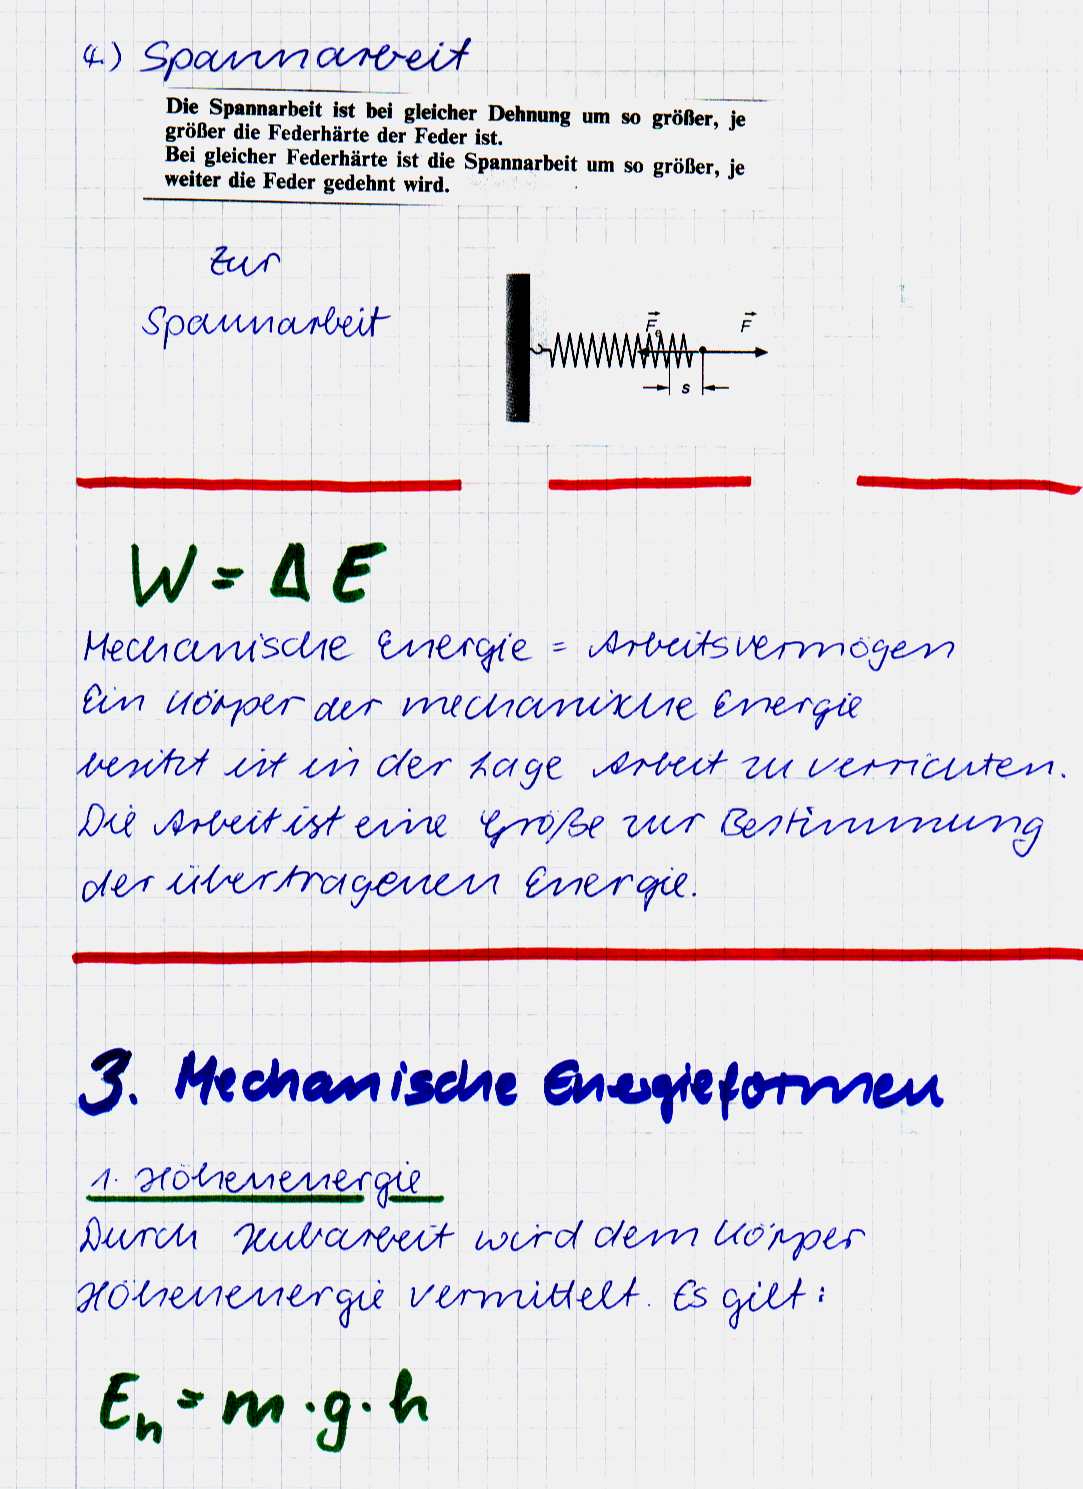 4.) Spannarbeit
Die Spannarbeit ist bei gleicher Dehnung um so größer, je
größer die Federhärte der Feder ist.
Bei gleicher Federhärte ist die Spannarbeit um so größer, je
weiter die Feder gedehnt wird.
Zur
Spannarbeit
F₀ F
s
W = Δ E
Mechanische Energie = Arbeitsvermögen
Ein Körper der mechanische Energie
besitzt ist in der Lage Arbeit zu verrichten.
Die Arbeit ist eine Größe zur Bestimmung
der übertragenen Energie.
3. Mechanische Energieformen
1. Höhenenergie
Durch Hubarbeit wird dem Körper
Höhenenergie vermittelt. Es gilt:
Eₕ = m · g · h